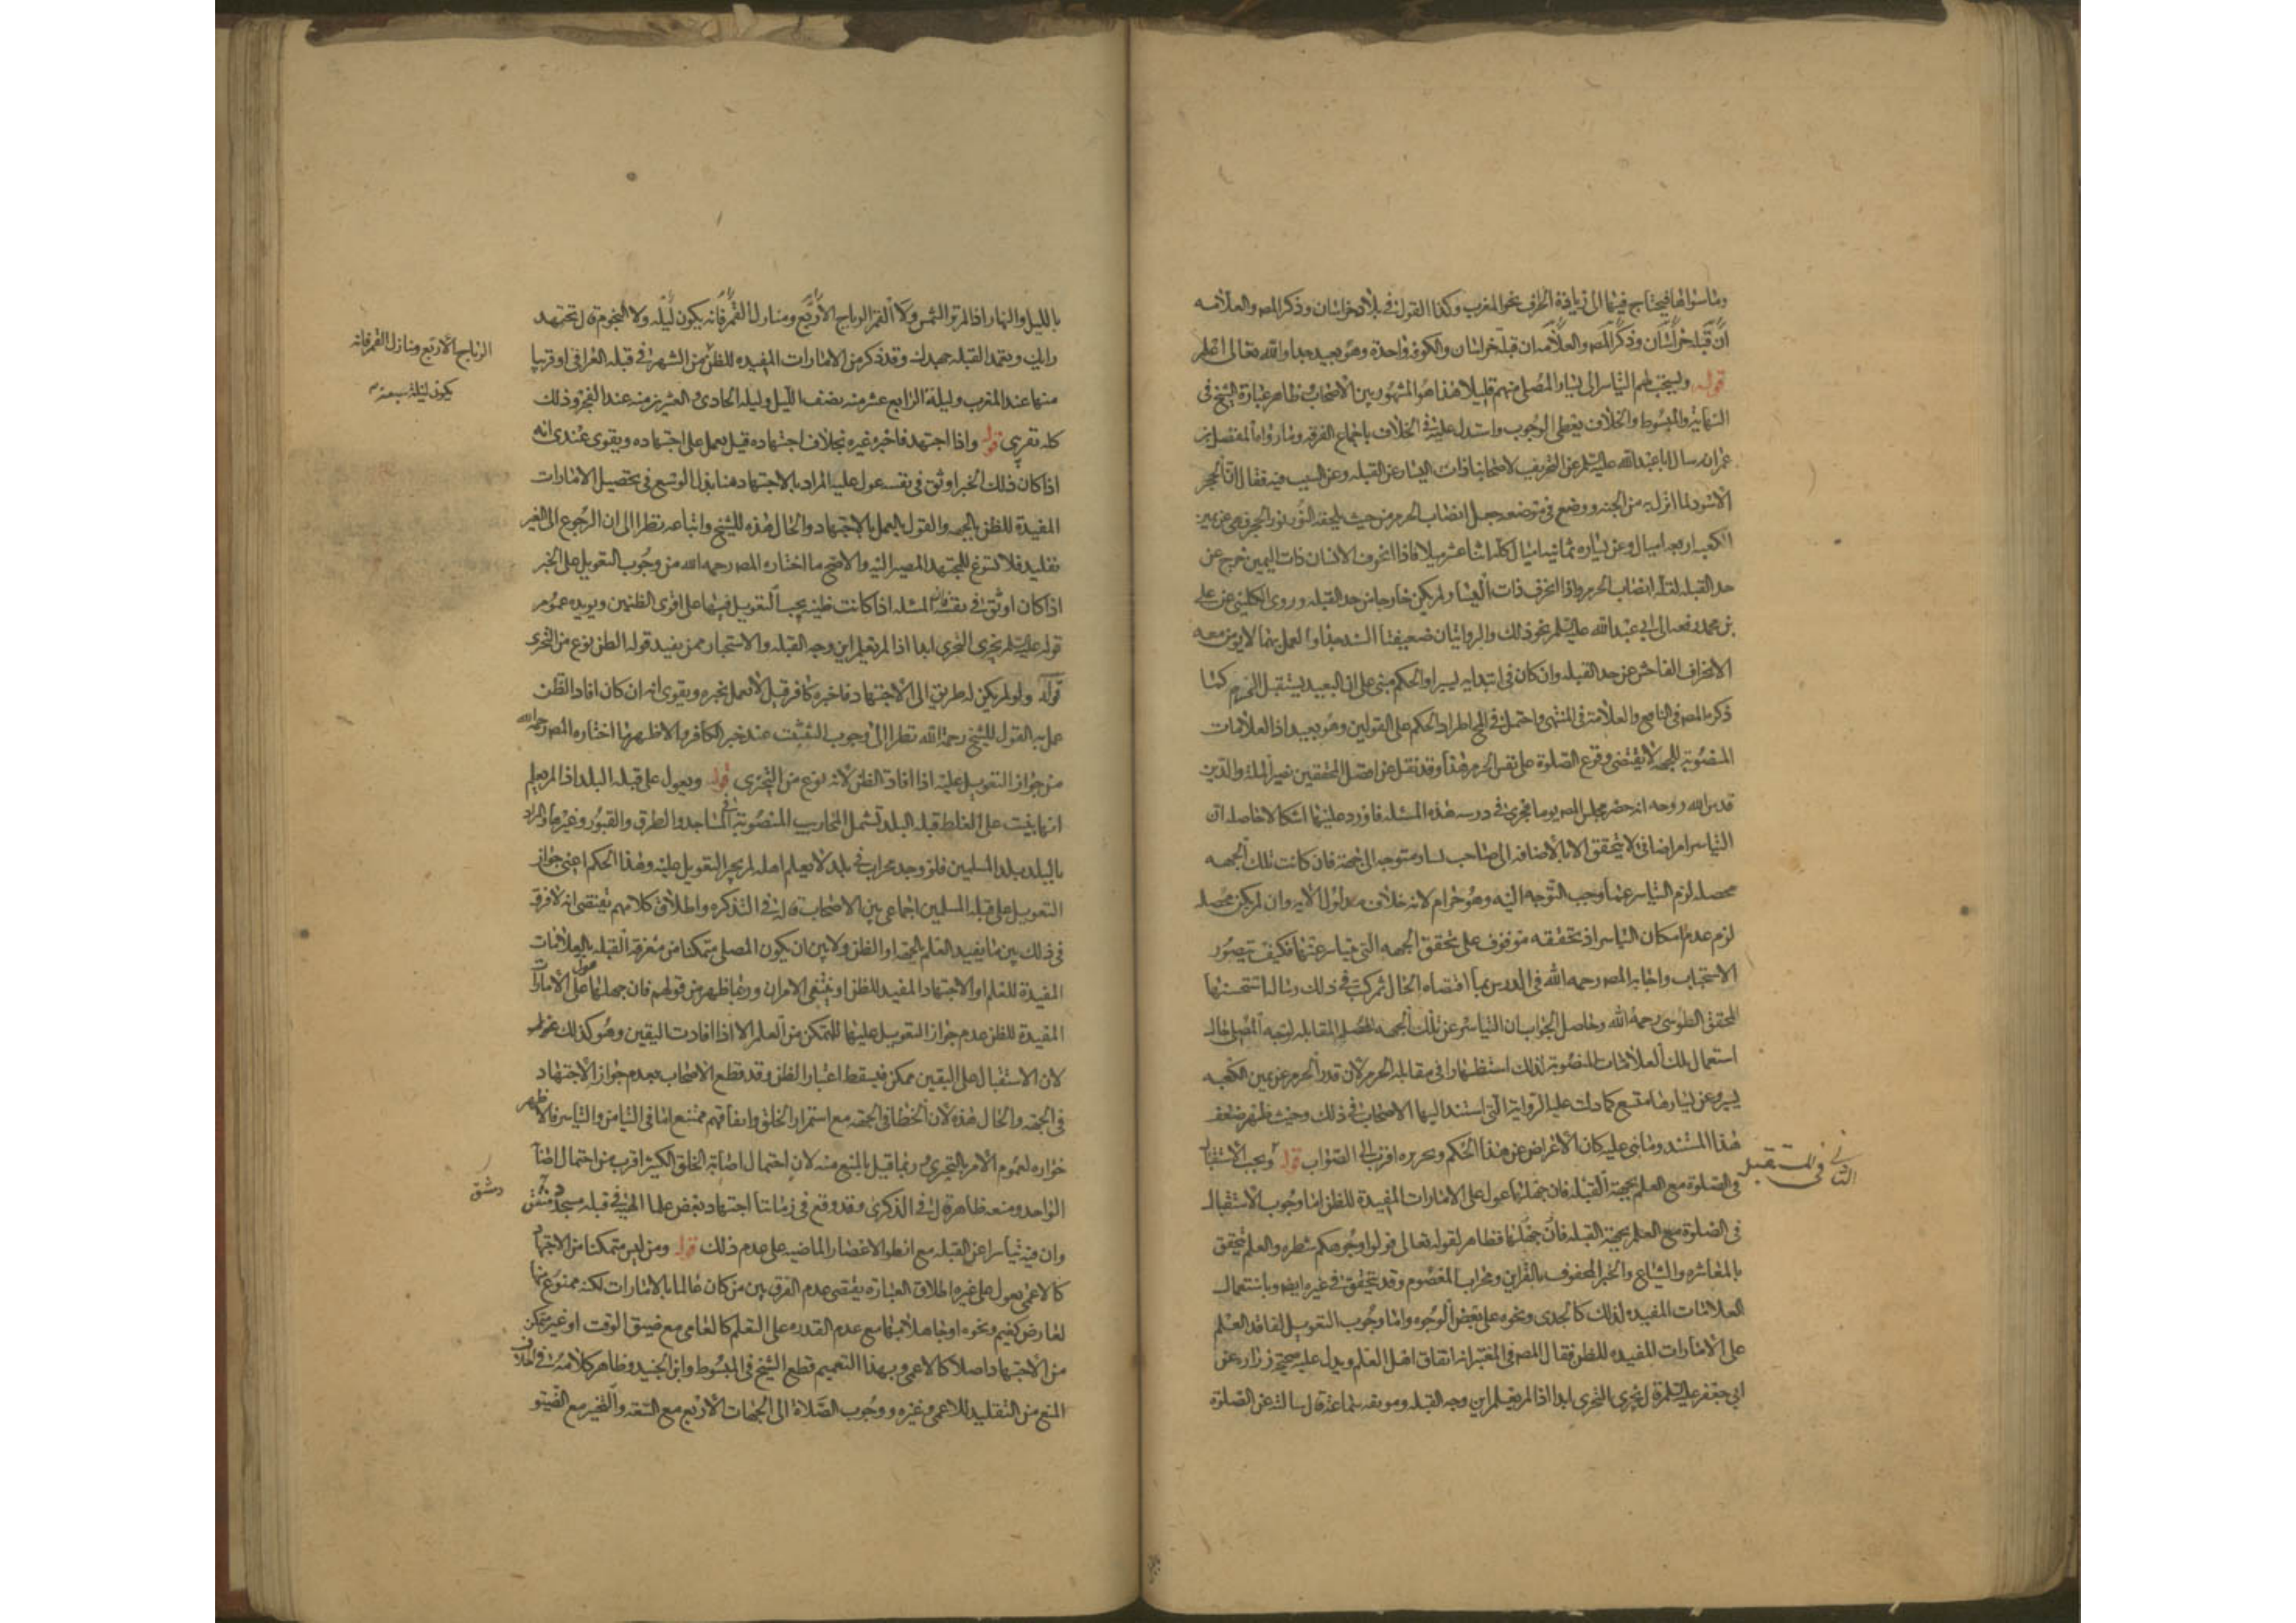 وما سواها فيحتاج فيها الى زيادة انحراف نحو المغرب وكذا القول في بلاد خراسان وذكر المص والعلامه
ان قبلة خراسان وذكر المص والعلامه ان قبلة خراسان والكوفه واحدة وهو بعيد جدا والله تعالى اعلم
قوله ويستحب لهم التياسر الى يسار المصلي منهم قليلا هذا هو المشهور بين الاصحاب وظاهر عبارة الشيخ في
النهاية والمبسوط والخلاف يعطى الوجوب واستدل عليه في الخلاف باجماع الفرقه وما رواه المفضل بن
عمر انه سال ابا عبد الله عليه السلم عن التحريف لاصحابنا ذات اليسار عن القبله وعن السبب فيه فقال ان الحجر
الاسود لما انزل به من الجنه ووضع في موضعه جعل انصاب الحرم من حيث يلحقه النور نور الحجر فهي عن يمين
الكعبه اربعه اميال وعن يساره ثمانيه اميال كله اثنا عشر ميلا فاذا انحرف الانسان ذات اليمين خرج عن
حد القبله لقله انصاب الحرم واذا انحرف ذات اليسار لم يكن خارجا من حد القبله وروى الكليني عن علي
بن محمد رفعه الى ابي عبد الله عليه السلم نحو ذلك والروايتان ضعيفتا السند جدا والعمل بهما لا يومن معه
الانحراف الفاحش عن حد القبله وان كان في ابتدايه يسيرا والحكم مبني على ان البعيد يستقبل الحرم كما
ذكره المص في النافع والعلامة في المنتهى واحتمل في اطراد الحكم على القولين وهو بعيد اذ العلامات
المنصوبة للجهه لا يقتضى وقوع الصلوة على نفس الحرم هذا وقد نقل عن افضل المحققين نصير الملة والدين
قدس الله روحه انه حضر مجلس المص يوما فجرى في درسه هذه المسئله فاورد عليها اشكالا حاصله ان
التياسر امر اضافى لا يتحقق الا بالاضافه الى صاحب يسار متوجه الى جهة فان كانت تلك الجهه
محصله لزم التياسر عما وجب التوجه اليه وهو حرام لانه خلاف مدلول الايه وان لم يكن محصله
لزم عدم امكان التياسر اذ تحققه موقوف على تحقق الجهه التي يتياسر عنها فكيف يتصور
الاستحباب واجابه المص رحمه الله في الدرس بما اقتضاه الحال ثم كتب في ذلك رسالة استحسنها
المحقق الطوسي رحمه الله وحاصل الجواب ان التياسر عن تلك الجهه المقابله لوجه المصلي حال
استعمال تلك العلامات المنصوبة لذلك استظهارا في مقابله الحرم لان قدر الحرم عن يمين الكعبه
يسير وعن يسارها متسع كما دلت عليه الرواية التي استند اليها الاصحاب في ذلك وحيث ظهر ضعف
هذا المستند وما بنى عليه كان الاعراض عن هذا الحكم وتحريره اقرب الى الصواب قوله ويجب الاستقبال
في الصلوة مع العلم بجهة القبله فان جهلها عول على الامارات المفيدة للظن اما وجوب الاستقبال
في الصلوة مع العلم بجهة القبله فان جهلها فظاهر لقوله تعالى فولوا وجوهكم شطره والعلم يتحقق
بالمعاشره والشياع والخبر المحفوف بالقراين ومحراب المعصوم وقد يتحقق في غيره ايضا وباستعمال
العلامات المفيده لذلك كالجدى ونحوه على بعض الوجوه واما وجوب التعويل لفاقد العلم
على الامارات المفيده للظن فقال المص في المعتبر انه اتفاق اهل العلم ويدل عليه صحيحة زرارة عن
ابي جعفر عليه السلم قال يجزى التحري ابدا اذا لم يعلم اين وجه القبله وموثقه سماعة قال سالته عن الصلوة
الثاني في المستقبل
بالليل والنهار اذا لم تر الشمس ولا القمر الرياح الاربع ومنازل القمر فانه يكون ليله ولا النجوم قال تجتهد
رايك وتعمد القبله جهدك وقد ذكر من الامارات المفيده للظن من الشهر في قبله العراقي او قريبا
منها عند المغرب وليلة الرابع عشر منه نصف الليل وليله الحادي والعشرين منه عند الفجر وذلك
كله تقريبي قوله واذا اجتهد فاخبره غيره بخلاف اجتهاده قيل يعمل على اجتهاده ويقوى عندى انه
اذا كان ذلك الخبر اوثق في نفسه عول عليه المراد بالاجتهاد هنا بذل الوسع في تحصيل الامارات
المفيدة للظن بالجهه والقول بالعمل بالاجتهاد والحال هذه للشيخ واتباعه نظرا الى ان الرجوع الى الغير
تقليد فلا يسوغ للمجتهد المصير اليه والاصح ما اختاره المص رحمه الله من وجوب التعويل على الخبر
اذا كان اوثق في نفسه فان المسئله اذا كانت ظنيه يجب التعويل فيها على اقوى الظنين ويويده عموم
قوله عليه السلم يجزى التحرى ابدا اذا لم يعلم اين وجه القبله والاستخبار ممن يفيد قوله الظن نوع من التحرى
قوله ولو لم يكن له طريق الى الاجتهاد فاخبره كافر قيل لا يعمل بخبره ويقوى انه ان كان افاد الظن
عمل به القول للشيخ رحمه الله نظرا الى وجوب التثبت عند خبر الكافر والاظهر ما اختاره المص رحمه الله
من جواز التعويل عليه اذا افاد الظن لانه نوع من التحرى قوله ويعول على قبله البلد اذا لم يعلم
انها بنيت على الغلط قبله البلد تشمل المحاريب المنصوبة في المساجد والطرق والقبور وغيرها والمراد
بالبلد بلد المسلمين فلو وجد محراب في بلد لا يعلم اهله لم يجز التعويل عليه وهذا الحكم اعني جواز
التعويل على قبله المسلمين اجماعي بين الاصحاب قاله في التذكره واطلاق كلامهم يقتضى انه لا فرق
في ذلك بين ما يفيد العلم بالجهه او الظن ولا بين ان يكون المصلى متمكنا من معرفة القبله بالعلامات
المفيدة للعلم او الاجتهاد المفيد للظن او ينتفى الامران وربما ظهر من قولهم فان جهلها عول على الامارات
المفيدة للظن عدم جواز التعويل عليها للتمكن من العلم الا اذا افادت اليقين وهو كذلك
لان الاستقبال على اليقين ممكن فيسقط اعتبار الظن وقد قطع الاصحاب بعدم جواز الاجتهاد
في الجهه والحال هذه لان الخطا في الجهه مع استمرار الخلق واتفاقهم ممتنع اما في التيامن والتياسر فالاظهر
جوازه لعموم الامر بالتحرى وربما قيل بالمنع منه لان احتمال اصابة الخلق الكثير اقرب من احتمال اصابة
الواحد ومنعه ظاهر قال في الذكرى وقد وقع في زماننا اجتهاد بعض علماء الهيئه في قبله مسجد دمشق
وان فيه تياسرا عن القبله مع انطواء الاعصار الماضيه على عدم ذلك قوله ومن ليس متمكنا من الاجتهاد
كالاعمى يعول على غيره اطلاق العبارة يقتضى عدم الفرق بين من كان عالما بالامارات لكنه ممنوع منها
لعارض كغيم ونحوه او جاهلا بها مع عدم القدره على التعلم كالعامي مع ضيق الوقت او غير متمكن
من الاجتهاد اصلا كالاعمى وبهذا التعميم قطع الشيخ في المبسوط وابن الجنيد وظاهر كلامه في الخلاف
المنع من التقليد للاعمى وغيره ووجوب الصلاة الى الجهات الاربع مع السعه والتخير مع الضيق
الرياح الاربع ومنازل القمر فانه
يكون ليلة سبعة من
دمشق